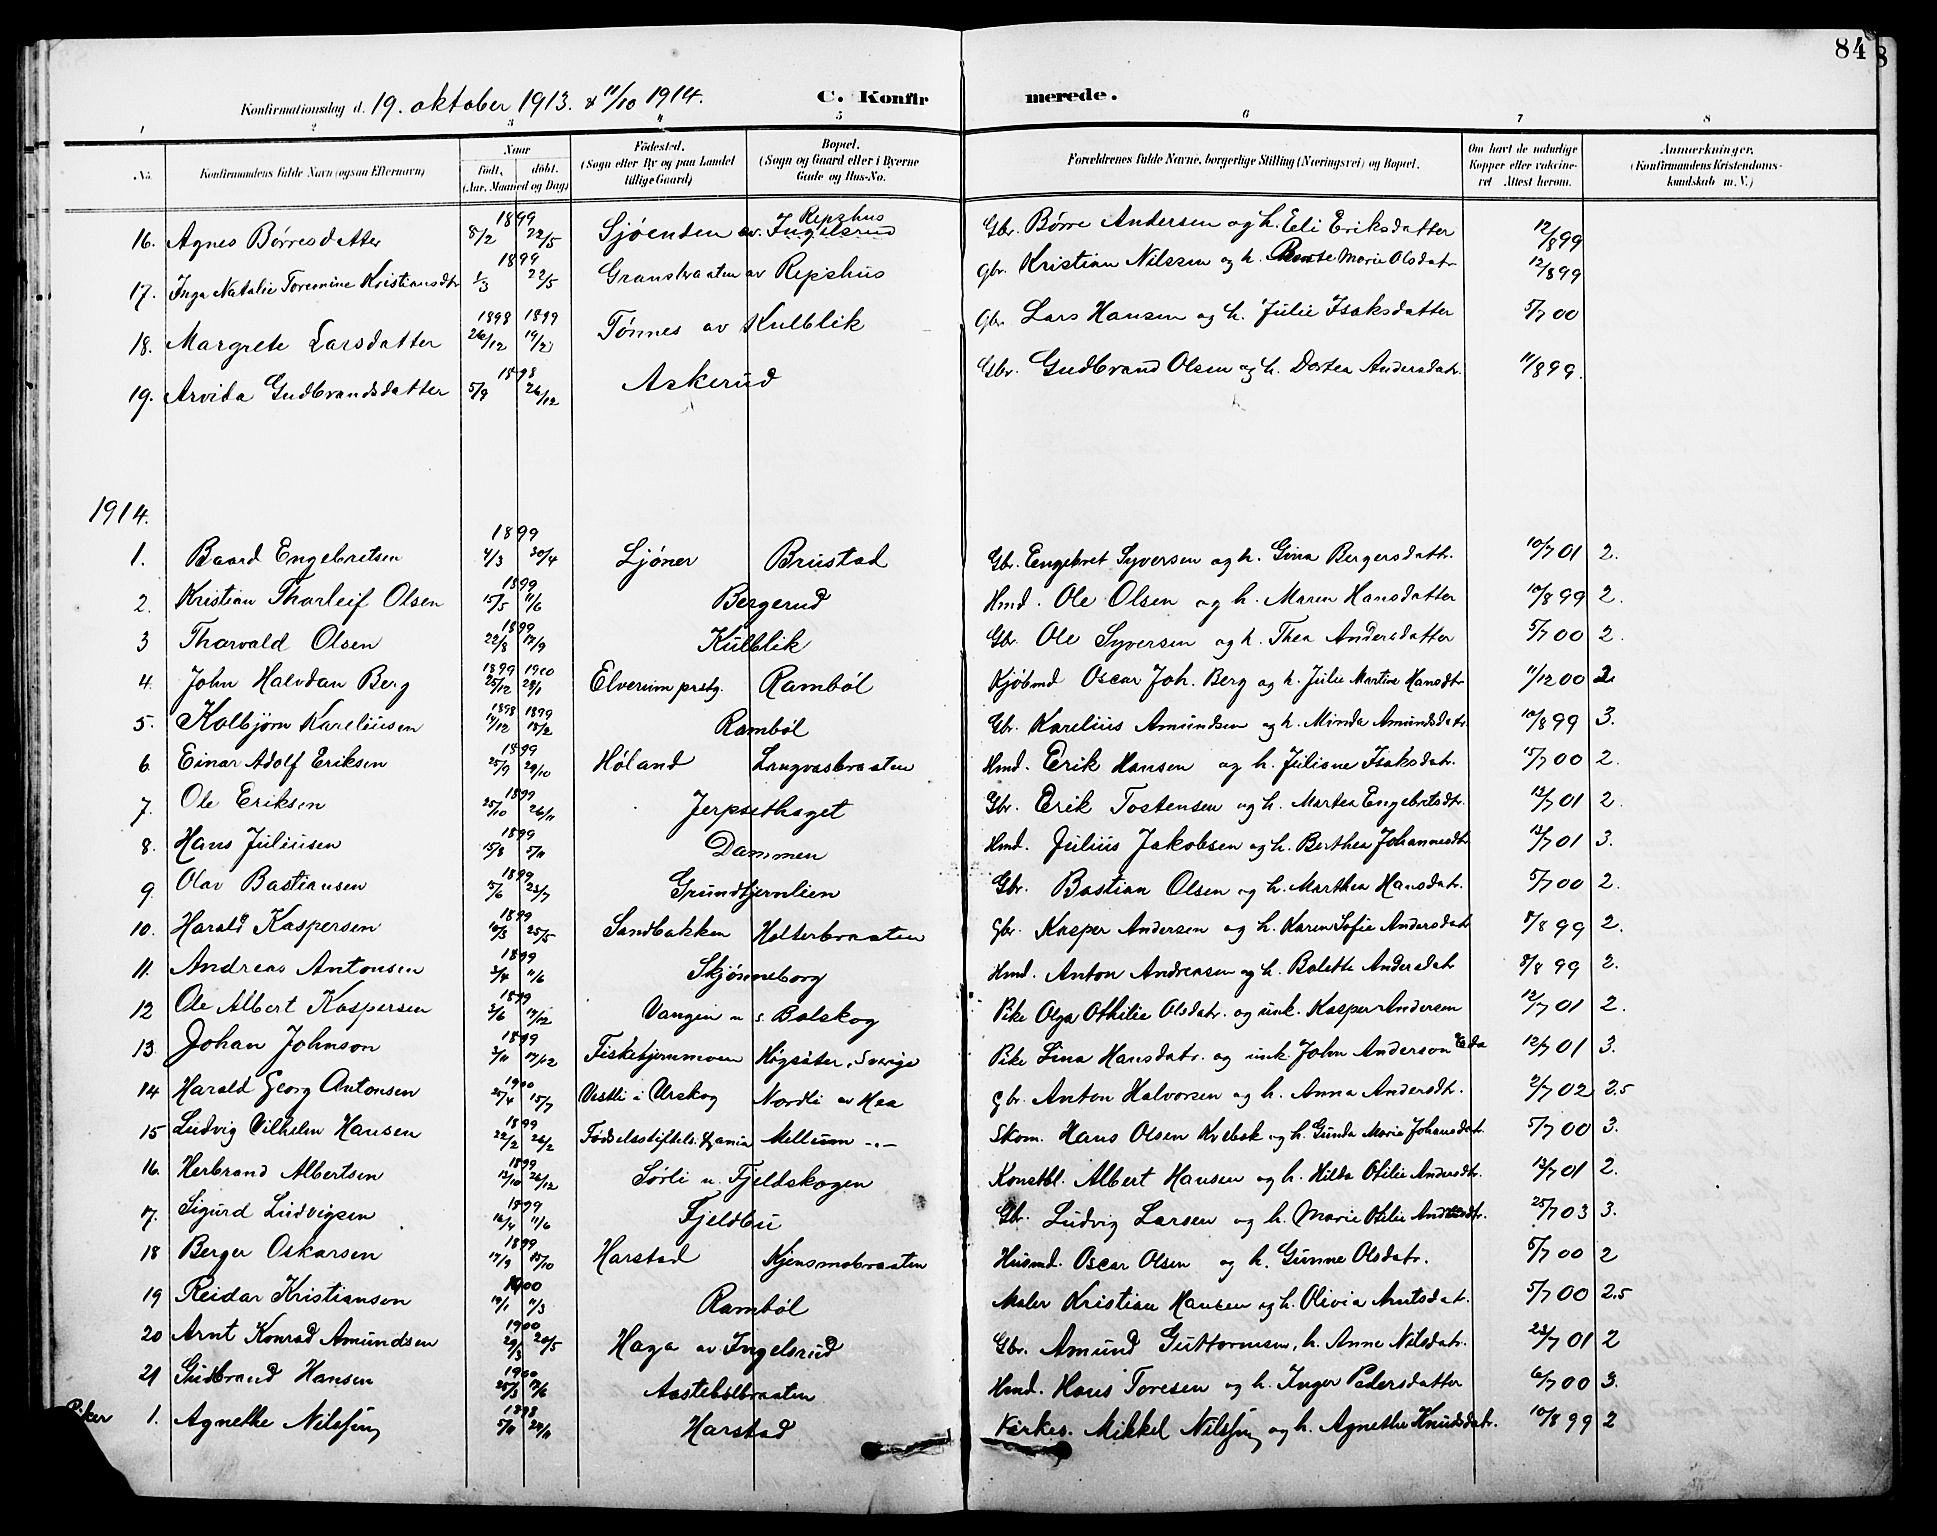 84
8
Konfirmationsdag d. 19. oktober 1913. & 11/10 1914. C. Konfirmerede.
1 2 3 4 5 6 7 8
No. Konfirmandens fulde Navn (ogsaa Efternavn) Naar født, døbt. (Aar, Maaned og Dag) Fødested. (Sogn eller By og paa Landet tillige Gaard) Bopæl. (Sogn og Gaard eller i Byerne Gade og Hus-No. Forældrenes fulde Navne, borgerlige Stilling (Næringsvei) og Bopæl. Om havt de naturlige Kopper eller vaccineret Attest herom. Anmerkninger. (Konfirmandens Kristendomskundskab m. V.)
16. Agnes Børresdatter 1899 8/2 22/5 Sjøenden av Ingelsrud Repshus Gbr. Børre Andersen og h. Eli Eriksdatter 12/8 99
17. Inga Natalie Toremine Kristiansdtr 1899 1/3 22/5 Granbraaten av Repshus Gbr. Kristian Nilssen og h. Bente Marie Olsdatr 12/8 99
18. Margrete Larsdatter 1898 26/12 1899 19/2 Tønnes av Kulblik Gbr. Lars Hansen og h. Julie Isaksdatter 5/7 00
19. Arvida Gudbrandsdatter 1898 5/9 26/12 Askerud Gbr. Gudbrand Olsen og h. Dortea Andersdatr. 11/8 99.
1914.
1. Baard Engebretsen 1899 4/3 30/4 Ljøner Brustad Gbr. Engebret Syversen og h. Gina Bergersdattr. 10/7 01 2.
2. Kristian Thorleif Olsen 1899 15/5 11/6 Bergerud Hmd. Ole Olsen og h. Maren Hansdatter 10/8 99 2.
3 Thorvald Olsen 1899 22/8 17/9 Kulblik Gbr. Ole Syversen og h. Thea Andersdatter 5/7 00 2.
4. John Halvdan Berg 1899 25/12 1900 28/1 Elverum prstg. Rambøl Kjøbmd Oscar Joh. Berg og h. Julie Martine Hansdtr 11/12 00 2.
5. Kolbjørn Kareliusen 1898 17/12 1899 18/2 Rambøl Gbr. Karelius Amundsen og h. Minda Amundsdatr. 10/8 99 3.
6. Einar Adolf Eriksen 1899 25/9 29/10 Høland Langvasbraaten Hmd. Erik Hansen og h. Juliane Isaksdatr. 15/7 00 2.
7. Ole Eriksen 1899 25/10 26/11 Jerpsethaget Gbr. Erik Tostensen og h. Martea Engebretsdtr. 12/7 01 2.
8. Hans Juliusen 1899 15/8 5/11 Dammen Hmd. Julius Jakobsen og h. Berthea Johannesdtr 12/7 01 3.
9. Olav Bastiansen 1899 5/6 23/7 Grundtjernlien Gbr. Bastian Olsen og h. Marthea Hansdatr. 5/7 00 2.
10. Harald Kaspersen 1899 10/3 25/5 Sandbakken Holterbraaten Gbr. Kasper Andersen og h. Karen Sofie Andersdatr 8/8 99 2.
11. Andreas Antonsen 1899 3/4 11/6 Skjønneborg Hmd. Anton Andreasen og h. Bolette Andersdatr 8/8 99 2.
12 Ole Albert Kaspersen 1899 3/6 17/12 Vangen u s. Bolskog Pike Olga Othilie Olsdatr. og unk. Kasper Andersen 12/7 01 2.
13. Johan Johnson 1899 2/11 17/12 Fisketjernmoen Høgsäter, Sverige Pike Lina Hansdatr. og unk. John Anderson Eda 12/7 01 3.
14 Harald Georg Antonsen 1900 25/4 15/7 Vestli i Urskog Nordli av Haa Gbr. Anton Halvorsen og h. Anna Andersdtr. 2/7 02 2.5
15 Ludvig Vilhelm Hansen 1899 22/2 26/2 Fødselsstiftels. Kr.ania Mellum -"- Skom. Hans Olsen Krebsk og h. Gunda Marie Johansdatr. 5/7 00 3.
16. Herbrand Albertsen 1899 12/10 26/12 Sørli u. Fjeldskogen Konstbl. Albert Hansen og h. Hilda Otilie Andersdtr. 12/7 01 2.
17. Sigurd Ludvigsen 1899 16/4 11/6 Fjeldbu Gbr. Ludvig Larsen og h. Marie Otilie Andersdtr. 25/7 03 3.
18 Berger Oskarsen 1899 17/9 15/10 Harstad Kjensmobraaten Husmd. Oscar Olsen og h. Gunne Olsdatr. 5/7 00 2
19 Reidar Kristiansen 1900 19/1 11/3 Rambøl Maler Kristian Hansen og h. Olivia Arntsdatr. 5/7 00 2.5
20 Arnt Konrad Amundsen 1900 29/3 20/5 Haga av Ingelsrud Gbr. Amund Guttormsen, h. Anne Nilsdatr. 23/7 01 2
21 Gudbrand Hansen 1900 25/3 17/6 Aastebølbraaten Hmd. Hans Toresen og h. Inger Pedersdatter 6/7 00 3.
Piker 1. Agnethe Nilssen 1898 5/11 29/11 Harstad Kirkes. Mikkel Nilssen og h. Agnethe Knudsdatr. 10/8 99 2